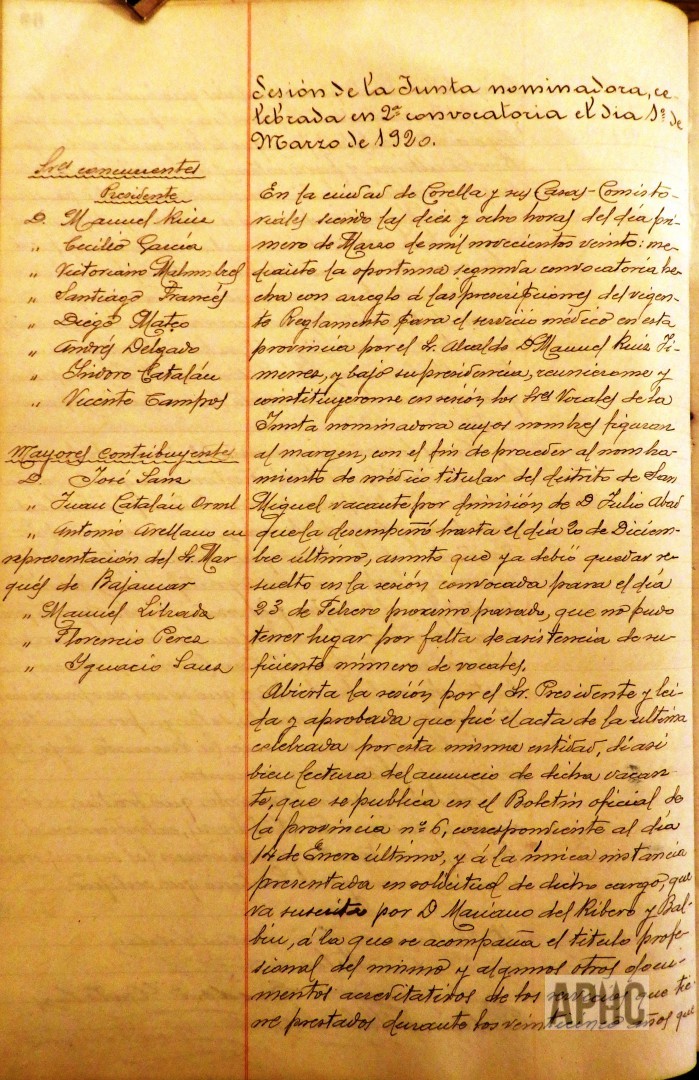 Sesión de la Junta nominadora, ce-
lebrada en 2ª convocatoria el dia 1º de
Marzo de 1920.
Sres concurrentes
Presidente
D. Manuel Ruiz
„ Cecilio García
„ Victoriano
„ Santiago Francés
„ Diego Mateo
„ Andrés Delgado
„ Isidoro Catalán
„ Vicente Campos
Mayores contribuyentes
D. José Sanz
„ Juan Catalán
„ Antonio Arellano en
representación del Sr. Mar
qués de Bajamar
„ Manuel Librada
„ Florencio Perez
„ Ygnacio Sanz
En la ciudad de Corella y sus Casas-Consisto-
riales siendo las diez y ocho horas del día pri-
mero de Marzo de mil novecientos veinte: me-
diante la oportuna segunda convocatoria he-
cha con arreglo á las prescripciones del vigen-
te Reglamento para el servicio médico en esta
provincia por el Sr. Alcalde D. Manuel Ruiz Ji-
menez, y bajo su presidencia, reunieronse y
constituyeronse en sesión los Sres Vocales de la
Junta nominadora cuyos nombres figuran
al margen, con el fin de proceder al nombra-
miento de médico titular del distrito de San
Miguel vacante por dimisión de D Julio Abad
que la desempeñó hasta el día 20 de Diciem-
bre último, asunto que ya debió quedar re-
suelto en la sesión convocada para el día
23 de Febrero proximo pasado, que no pudo
tener lugar por falta de asistencia de su-
ficiente número de vocales.
Abierta la sesión por el Sr. Presidente y lei-
da y aprobada que fué el acta de la ultima
celebrada por esta misma entidad, dí asi
bien lectura del anuncio de dicha vacan-
te, que se publica en el Boletín oficial de
la provincia nº 6, correspondiente al día
14 de Enero último, y á la única instancia
presentada en solicitud de dicho cargo, que
va suscrita por D Mariano del Ribero y Bal-
bin, á la que se acompaña el titulo profe-
sional del mismo y algunos otros docu-
mentos acreditativos de los servicios que tie-
ne prestados durante los veinticinco años que
APHC